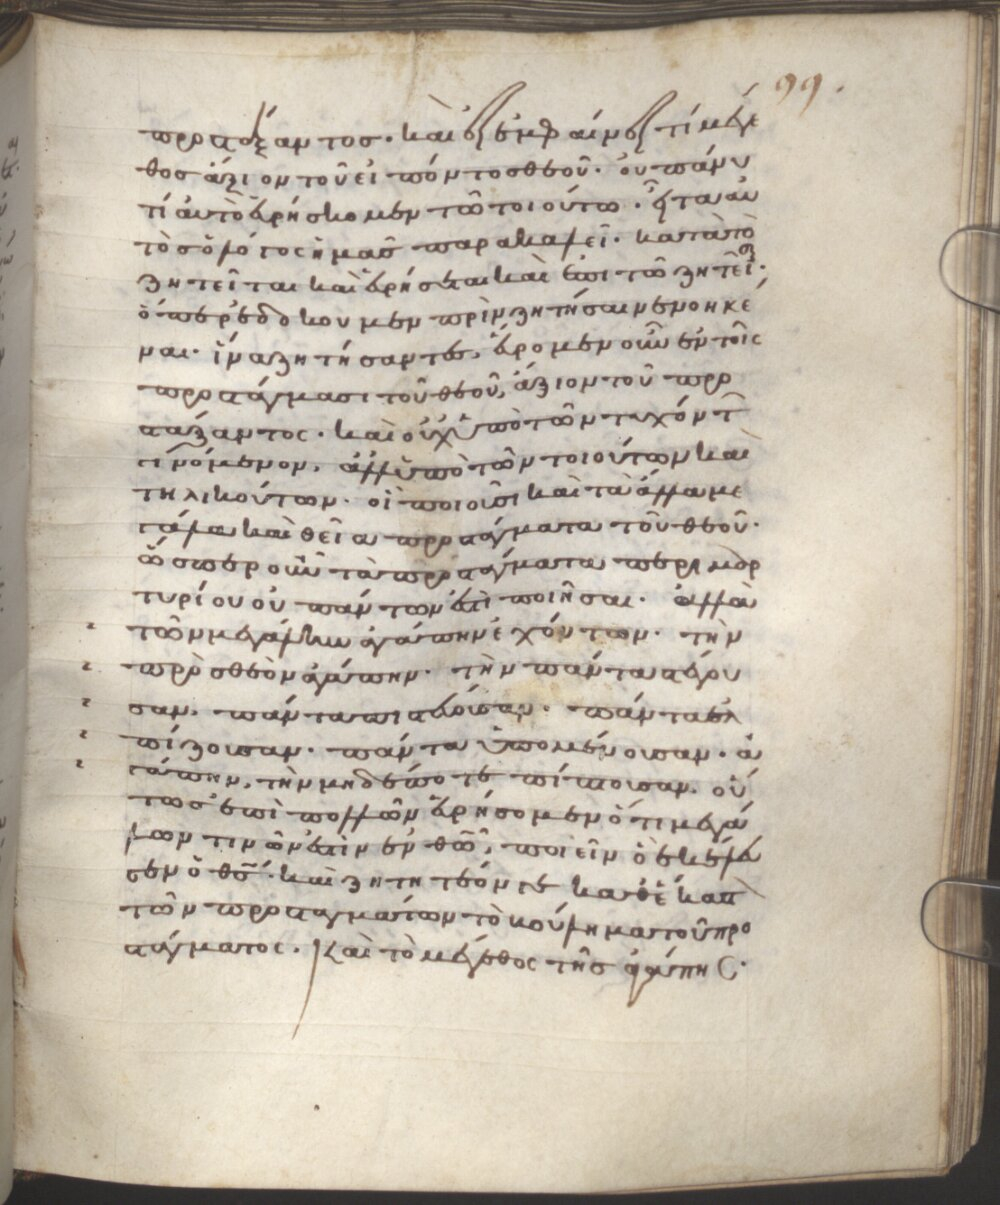 99.
προτάξαντος. καὶ εἰ ἐμφαίνει τί μέγε
θος ἄξιον τοῦ εἰπόντος θεοῦ. οὐ πάνυ
τί αὐτὸ εὑρήσκομεν τῶ τοιούτω. ὅταν αὐ
τὸς ὁ λόγος ἡμᾶς παρακαλεῖ. κατὰ τὸ
ζητεῖται καὶ εὑρήσεται καὶ ἐπὶ τῶ ζητεῖ.
ὅπερ ἐδοκουμεν πρὶν ζητήσαι νενοηκέ
ναι. ἵνα ζητήσαντες, εὕρομεν οὖν ἐν τοῖς
προτάγμασι τοῦ θεοῦ, ἄξιον τοῦ προ
τάξαντος. καὶ οὐχ ὑπὸ τῶν τυχόντ
γινόμενον, ἀλλ' ὑπὸ τῶν τοιούτων καὶ
τηλικούτων. οἳ ποιοῦσι καὶ τὰ ἄλλα με
γάλα καὶ θεῖα προτάγματα τοῦ θεοῦ.
ὥσπερ οὖν τὰ προτάγματα περὶ μαρ
τυρίου οὐ πάντων ἐστὶ ποιῆσαι. ἀλλὰ
τῶν μεγάλην ἀγάπην ἐχόντων. τὴν
πρὸς θεὸν ἀγάπην. τὴν πάντα στέγου
σαν, πάντα πιστεύουσαν. πάντα ἐλ
πίζουσαν. πάντα ὑπομένουσαν. ἀ
γάπην, τὴν μηδέποτε πίπτουσαν. οὕ
τως ἐπὶ πολλῶν εὑρήσομεν ὅτι μεγά
λων τινῶν ἐστὶν ἐν θεῶ, ποιεῖν ὃ ἐκέλευ
σεν ὁ θς. καὶ ζητητέον γε καθ' ἕκαστ
τῶν προταγμάτων τὸ βούλημα τοῦ προ
τάγματος. καὶ τὸ μέγεθος τῆς ἀγάπης.